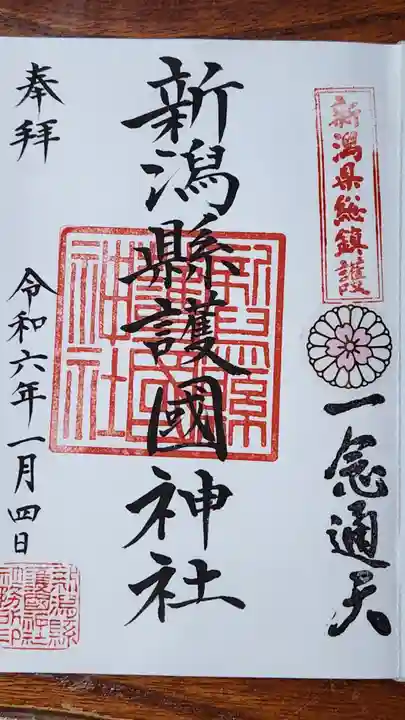 新潟県総鎮護
一念通天
新潟縣護國神社
新潟縣護國神社
奉拝
令和六年一月四日
新潟縣護國神社社務所印